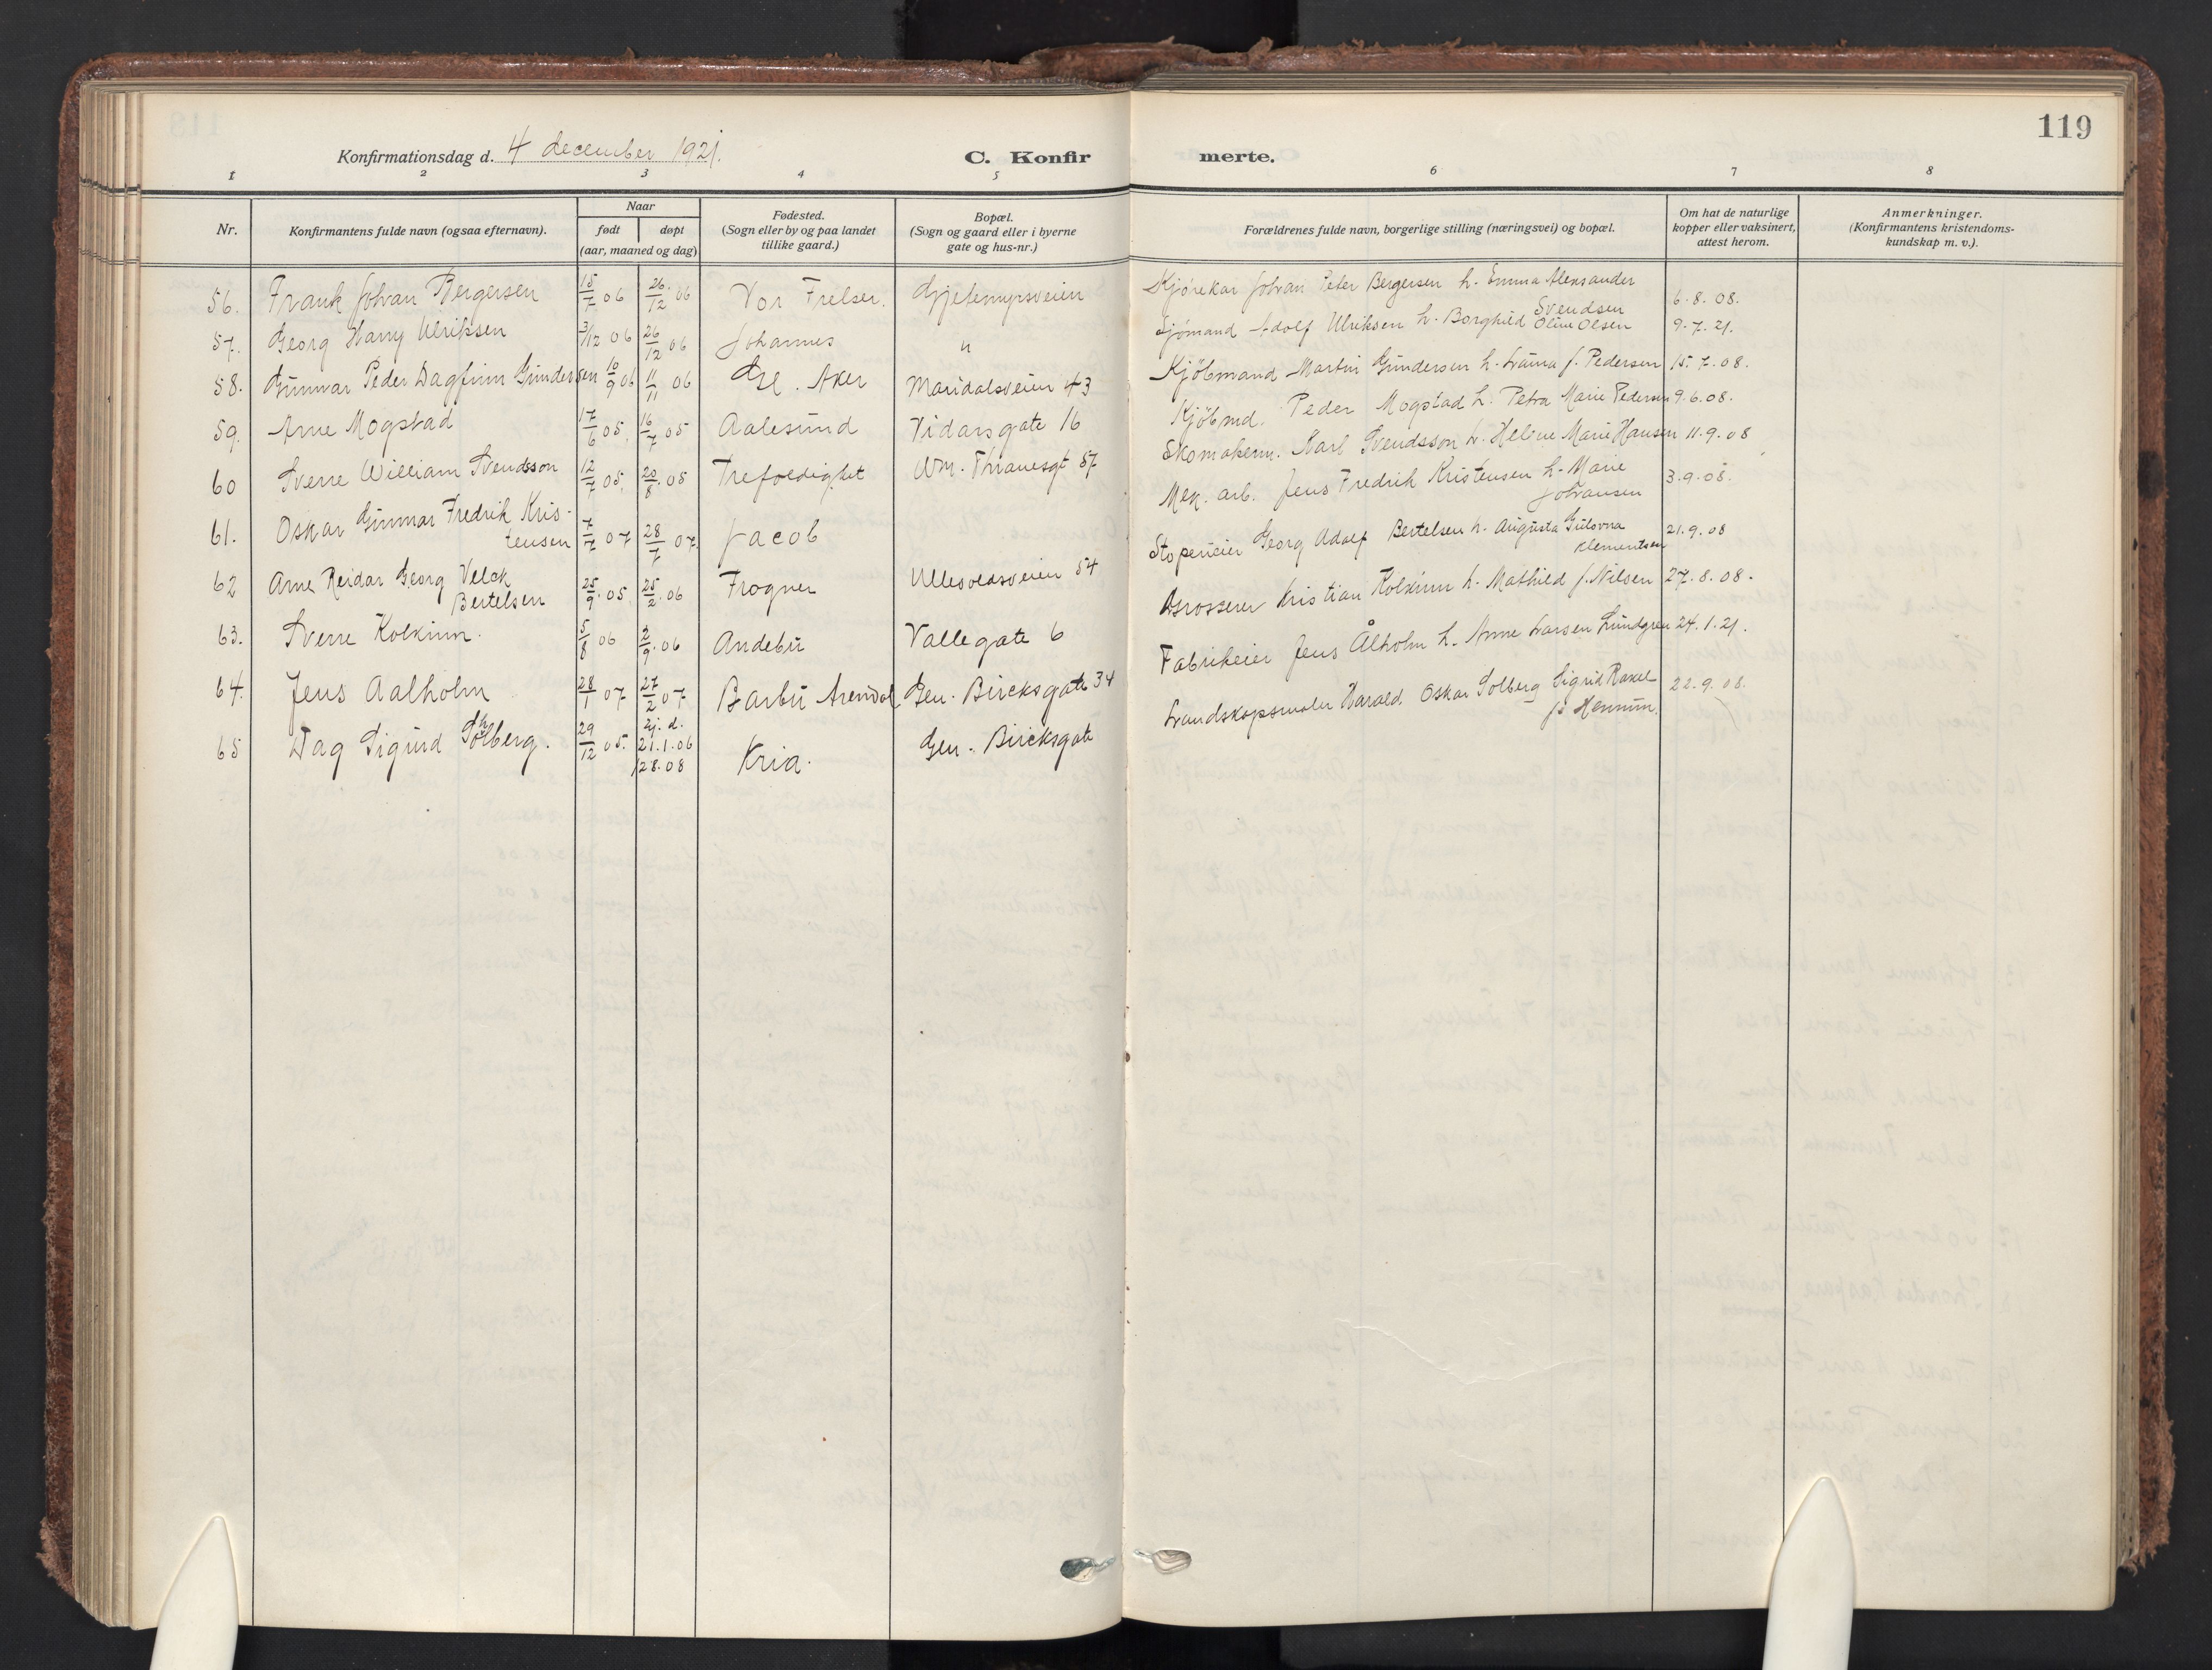 119
Konfirmationsdag d. 4 december 1921.
C. Konfirmerte.
1 2 3 4 5 6 7 8
Nr.
Konfirmantens fulde navn (ogsaa efternavn).
Naar
født døpt
(aar, maaned og dag)
Fødested.
(Sogn eller by og paa landet
tillike gaard.)
Bopæl.
(Sogn og gaard eller i byerne
gate og hus-nr.)
Forældrenes fulde navn, borgerlige stilling (næringsvei) og bopæl.
Om hat de naturlige
kopper eller vaksinert,
attest herom.
Anmerkninger.
(Konfirmantens kristendoms-
kundskap m. v.).
56. Frank Johan Bergersen 15/7 06 26/12 06 Vor Frelser. Gjetemyrsveien Kjørekar Johan Peter Bergersen h. Emma Aleksander
Svendsen 6.8.08.
57. Georg Harry Ulriksen 3/12 06 26/12 06 Johannes " Sjømand Adolf Ulriksen h. Borghild Oline Olsen 9.7.21.
58. Gunnar Peder Dagfinn Gundersen 10/9 06 11/11 06 Gl. Aker Maridalsveien 43 Kjöbmand Martin Gundersen h. Laura f. Pedersen 15.7.08.
59. Arne Mogstad 17/6 05. 16/7 05 Aalesund Vidarsgate 16 Kjöbmd. Peder Mogstad h. Petra Marie Pedersen 9.6.08.
60 Sverre William Svendsson 12/7 05. 20/8. 05 Trefoldighet Wm. Thranesgt 57 Skomakerm. Karl Svendsson h. Heline Marie Hansen 11.9.08
61. Oskar Gunnar Fredrik Kris-
tensen 7/7 07 28/7 07. Jacob Mek. arb. Jens Fredrik Kristensen h. Marie
Johansen 3.9.08.
62 Arne Reidar Georg Velck
Bertelsen 25/9. 05 25/2. 06 Frogner Ullevoldsveien 54 Stoperieier Georg Adolf Bertelsen h. Augusta Gulovna
Klementsen 21.9.08
63. Sverre Kolkinn. 5/8 06 2/9. 06 Andebu Vallegate 6 Grosserer Kristian Kolkinn h. Mathild f. Nilsen 27.8.08.
64. Jens Aalholm 28/1 07 27/2 07 Barbu Arendal Gen. Bircksgate 34 Fabrikeier Jens Ålholm h. Anne Larsen Lundgren 24.1.21.
65 Dag Sigurd Solberg. 29/12 05. Hj. d.
21.1.06
28.08 Kria. Gen. Bircksgate Landskapsmaler Harald Oskar Solberg Sigrid Rakel
f. Hennum. 22.9.08.